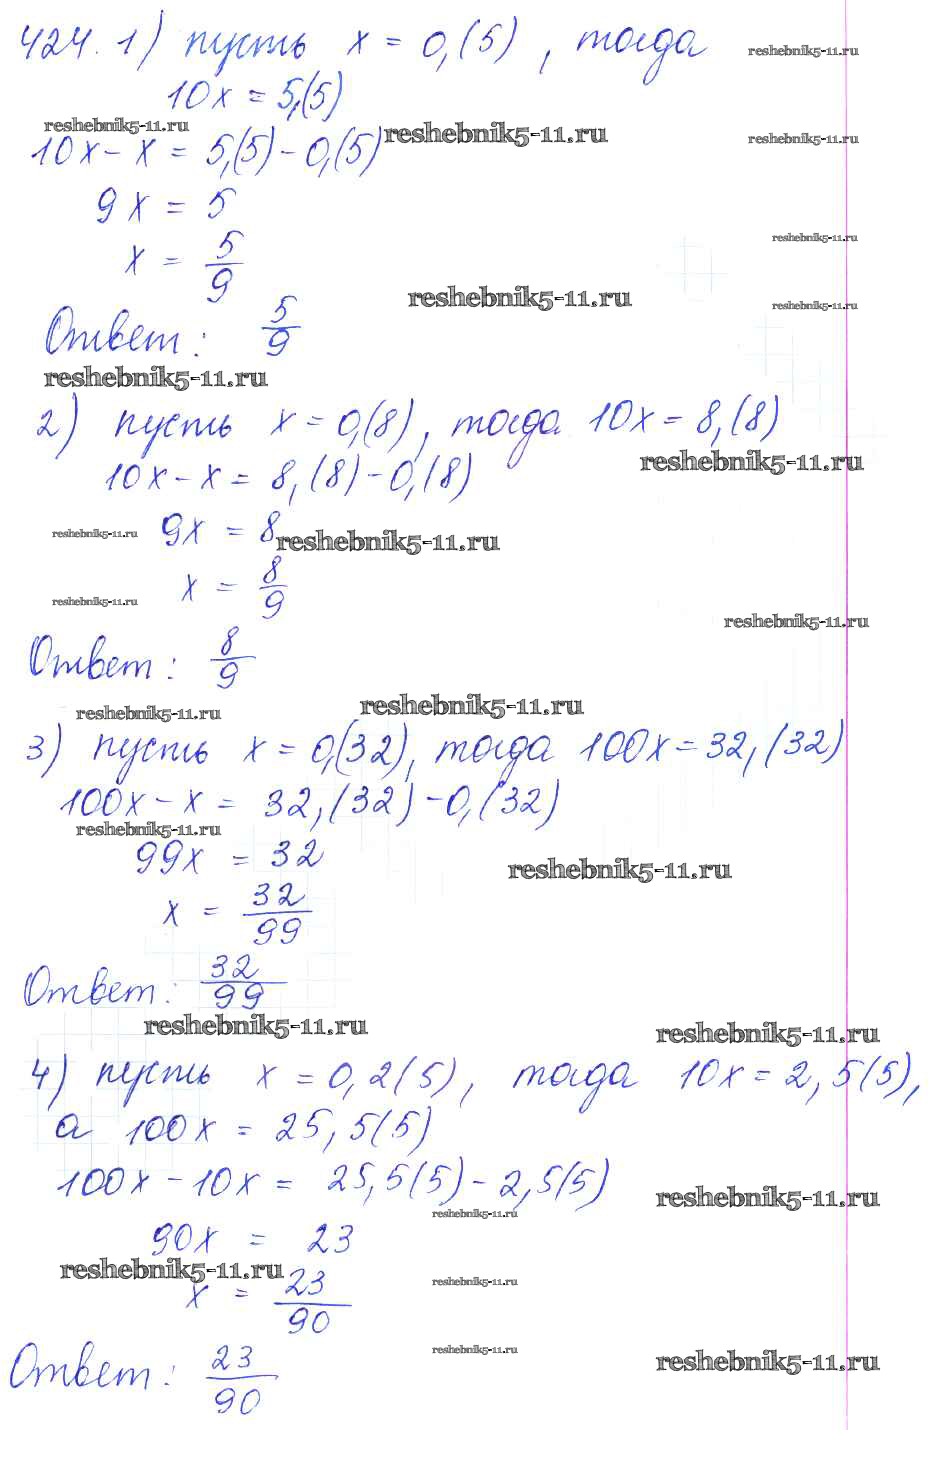 424. 1) пусть x = 0,(5) , тогда
reshebnik5-11.ru
10x = 5,(5)
reshebnik5-11.ru reshebnik5-11.ru reshebnik5-11.ru
10x - x = 5,(5) - 0,(5)
9x = 5
x = 5/9
reshebnik5-11.ru
reshebnik5-11.ru reshebnik5-11.ru
Ответ: 5/9
reshebnik5-11.ru
2) пусть x = 0,(8), тогда 10x = 8,(8)
reshebnik5-11.ru
10x - x = 8,(8) - 0,(8)
9x = 8
reshebnik5-11.ru reshebnik5-11.ru
x = 8/9
reshebnik5-11.ru reshebnik5-11.ru
Ответ: 8/9
reshebnik5-11.ru reshebnik5-11.ru
3) пусть x = 0,(32), тогда 100x = 32,(32)
100x - x = 32,(32) - 0,(32)
reshebnik5-11.ru
99x = 32
reshebnik5-11.ru
x = 32/99
Ответ: 32/99
reshebnik5-11.ru reshebnik5-11.ru
4) пусть x = 0,2(5), тогда 10x = 2,5(5),
а 100x = 25,5(5)
100x - 10x = 25,5(5) - 2,5(5)
reshebnik5-11.ru
reshebnik5-11.ru
90x = 23
reshebnik5-11.ru reshebnik5-11.ru
x = 23/90
reshebnik5-11.ru reshebnik5-11.ru
Ответ: 23/90